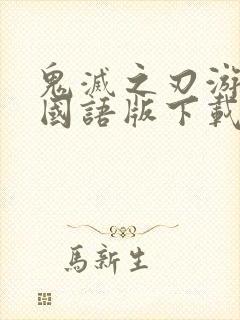 鬼滅之刃游
國語版下載
馬新生